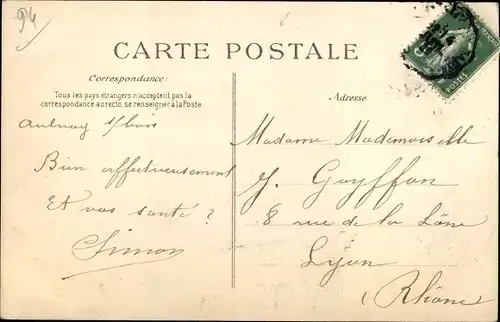 94
CARTE POSTALE
Correspondance:
Tous les pays étrangers n'acceptent pas la
correspondance au recto, se renseigner à la Poste
Adresse
Aulnay s/bois
Bien affectueusement
Et vos santé ?
Simon
Madame Mademoiselle
J. Goyffon
8 rue de la Lône
Lyon
Rhône
POSTES